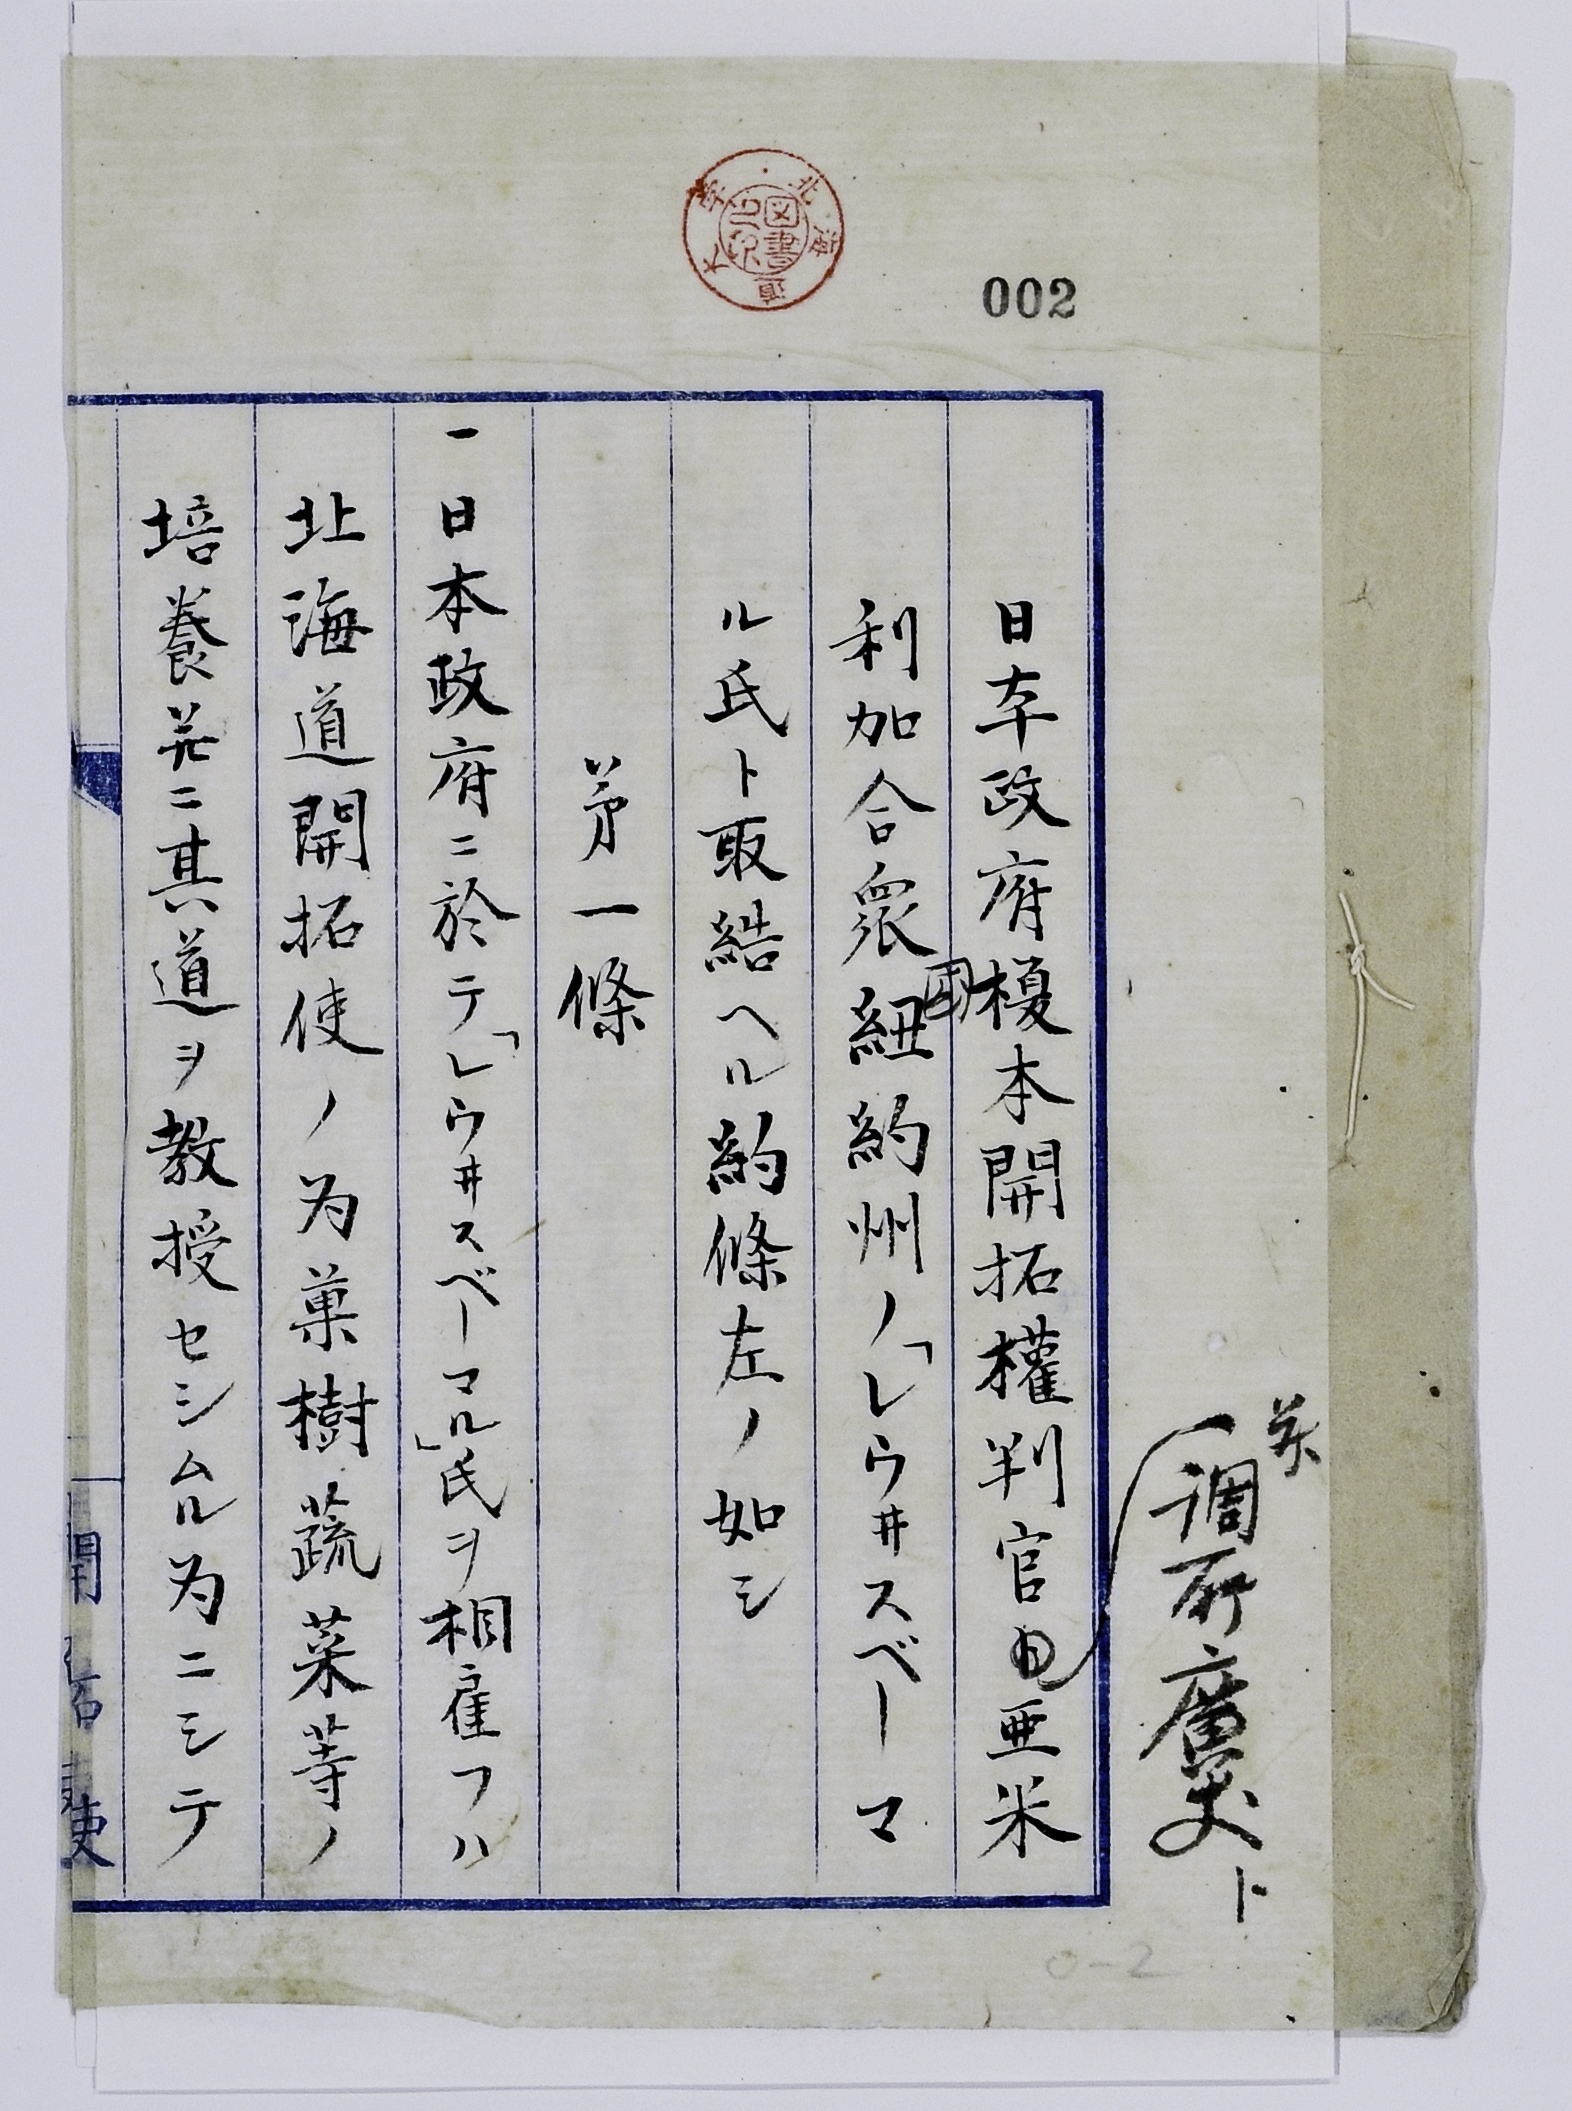 002
北海道大学
図書
調所廣丈ト
日本政府榎本開拓權判官亜米
利加合衆國紐約州ノ「レウ井スベーマ
ル氏ト取結ヘル約條左ノ如シ
第一條
一日本政府ニ於テ「レウ井スベーマル」氏ヲ相雇フハ
北海道開拓使ノ為菓樹蔬菜等ノ
培養并ニ其道ヲ教授セシムル為ニシテ
開拓使
0-2